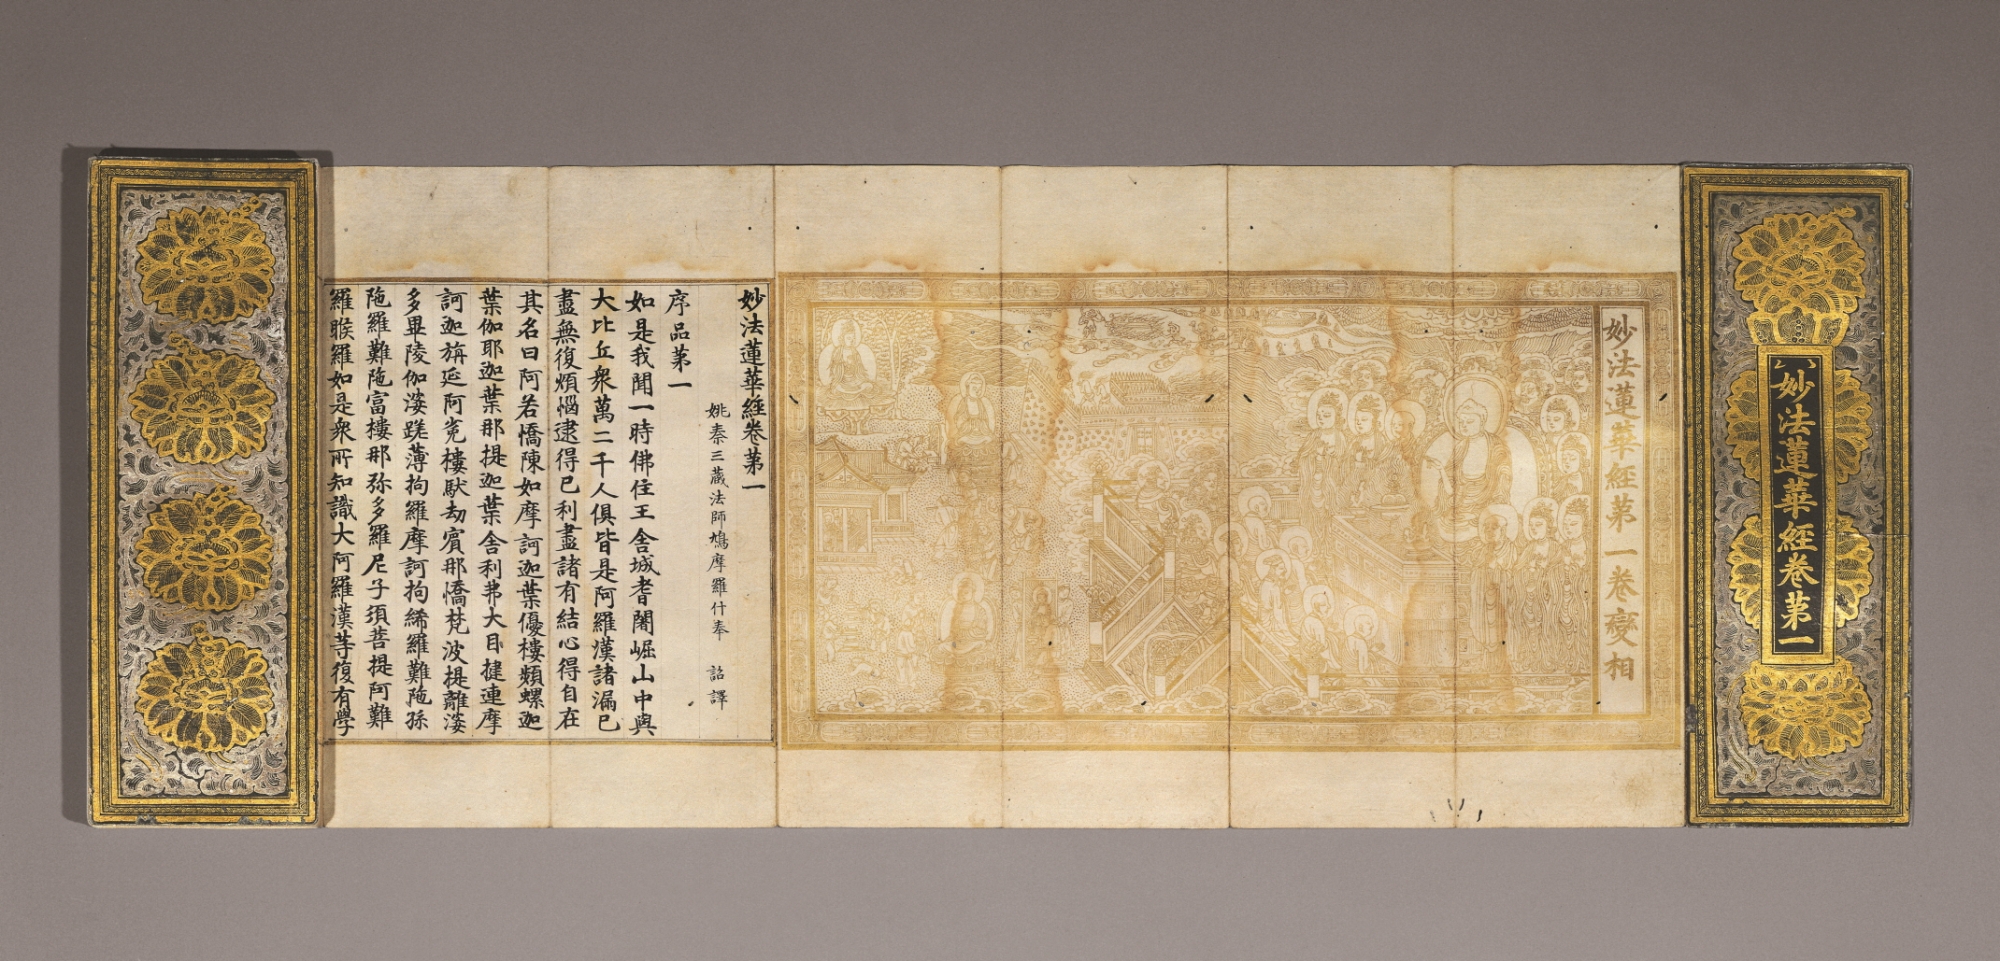 妙法蓮華經卷苐一
妙法蓮華經苐一卷變相
妙法蓮華經卷苐一
姚秦三藏法師鳩摩羅什奉 詔譯
序品苐一
如是我聞一時佛住王舍城耆闍崛山中與
大比丘衆萬二千人俱皆是阿羅漢諸漏已
盡無復煩惱逮得已利盡諸有結心得自在
其名曰阿若憍陳如摩訶迦葉優樓頻螺迦
葉伽耶迦葉那提迦葉舍利弗大目揵連摩
訶迦旃延阿㝹樓馱劫賓那憍梵波提離婆
多畢陵伽婆蹉薄拘羅摩訶拘絺羅難陁孫
陁羅難陁富樓那弥多羅尼子須菩提阿難
羅睺羅如是衆所知識大阿羅漢等復有學